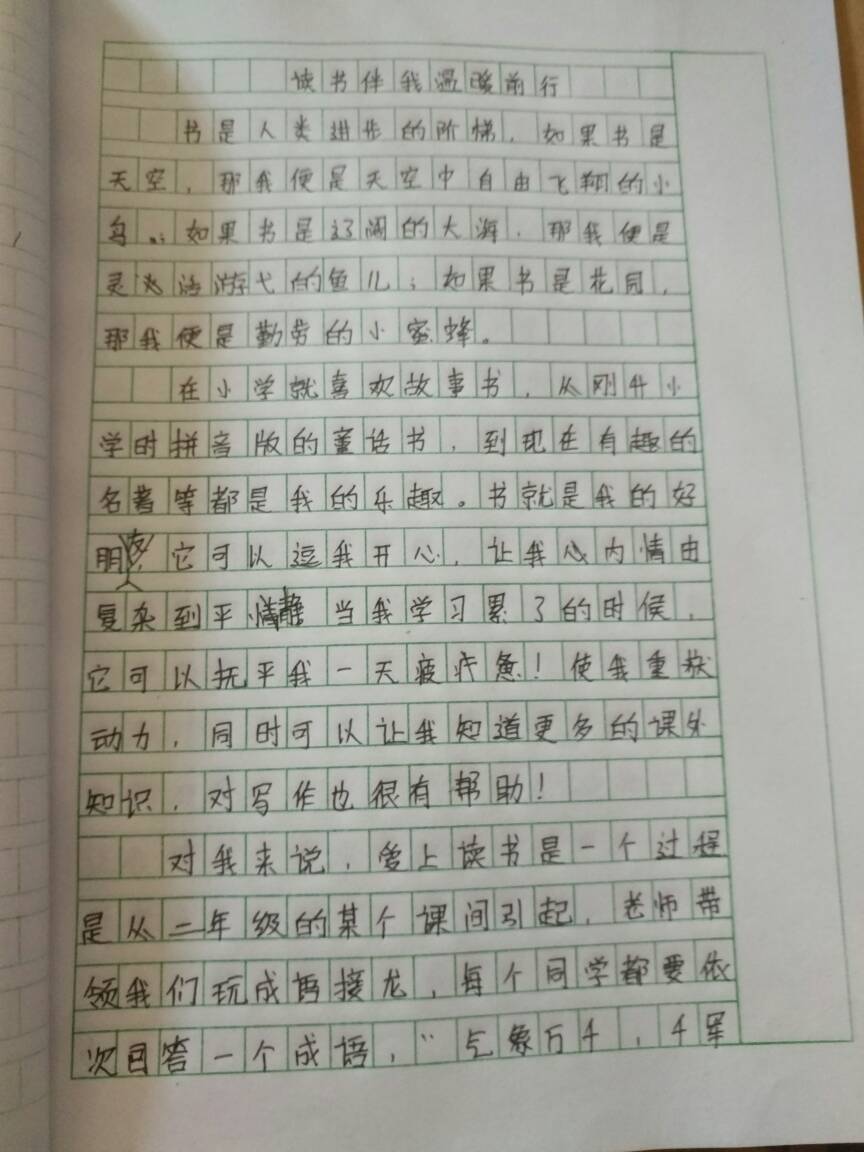 读书伴我温暖前行
书是人类进步的阶梯，如果书是
天空，那我便是天空中自由飞翔的小
鸟；如果书是辽阔的大海，那我便是
灵活游弋的鱼儿；如果书是花园，
那我便是勤劳的小蜜蜂。
在小学就喜欢故事书，从刚升小
学时拼音版的童话书，到现在有趣的
名著等都是我的乐趣。书就是我的好
朋友，它可以逗我开心，让我心内情由
复杂到平静 当我学习累了的时候，
它可以抚平我一天疲疗惫！使我重获
动力，同时可以让我知道更多的课外
知识，对写作也很有帮助！
对我来说，爱上读书是一个过程
是从二年级的某个课间引起，老师带
领我们玩成语接龙，每个同学都要依
次回答一个成语，“气象万千，千军